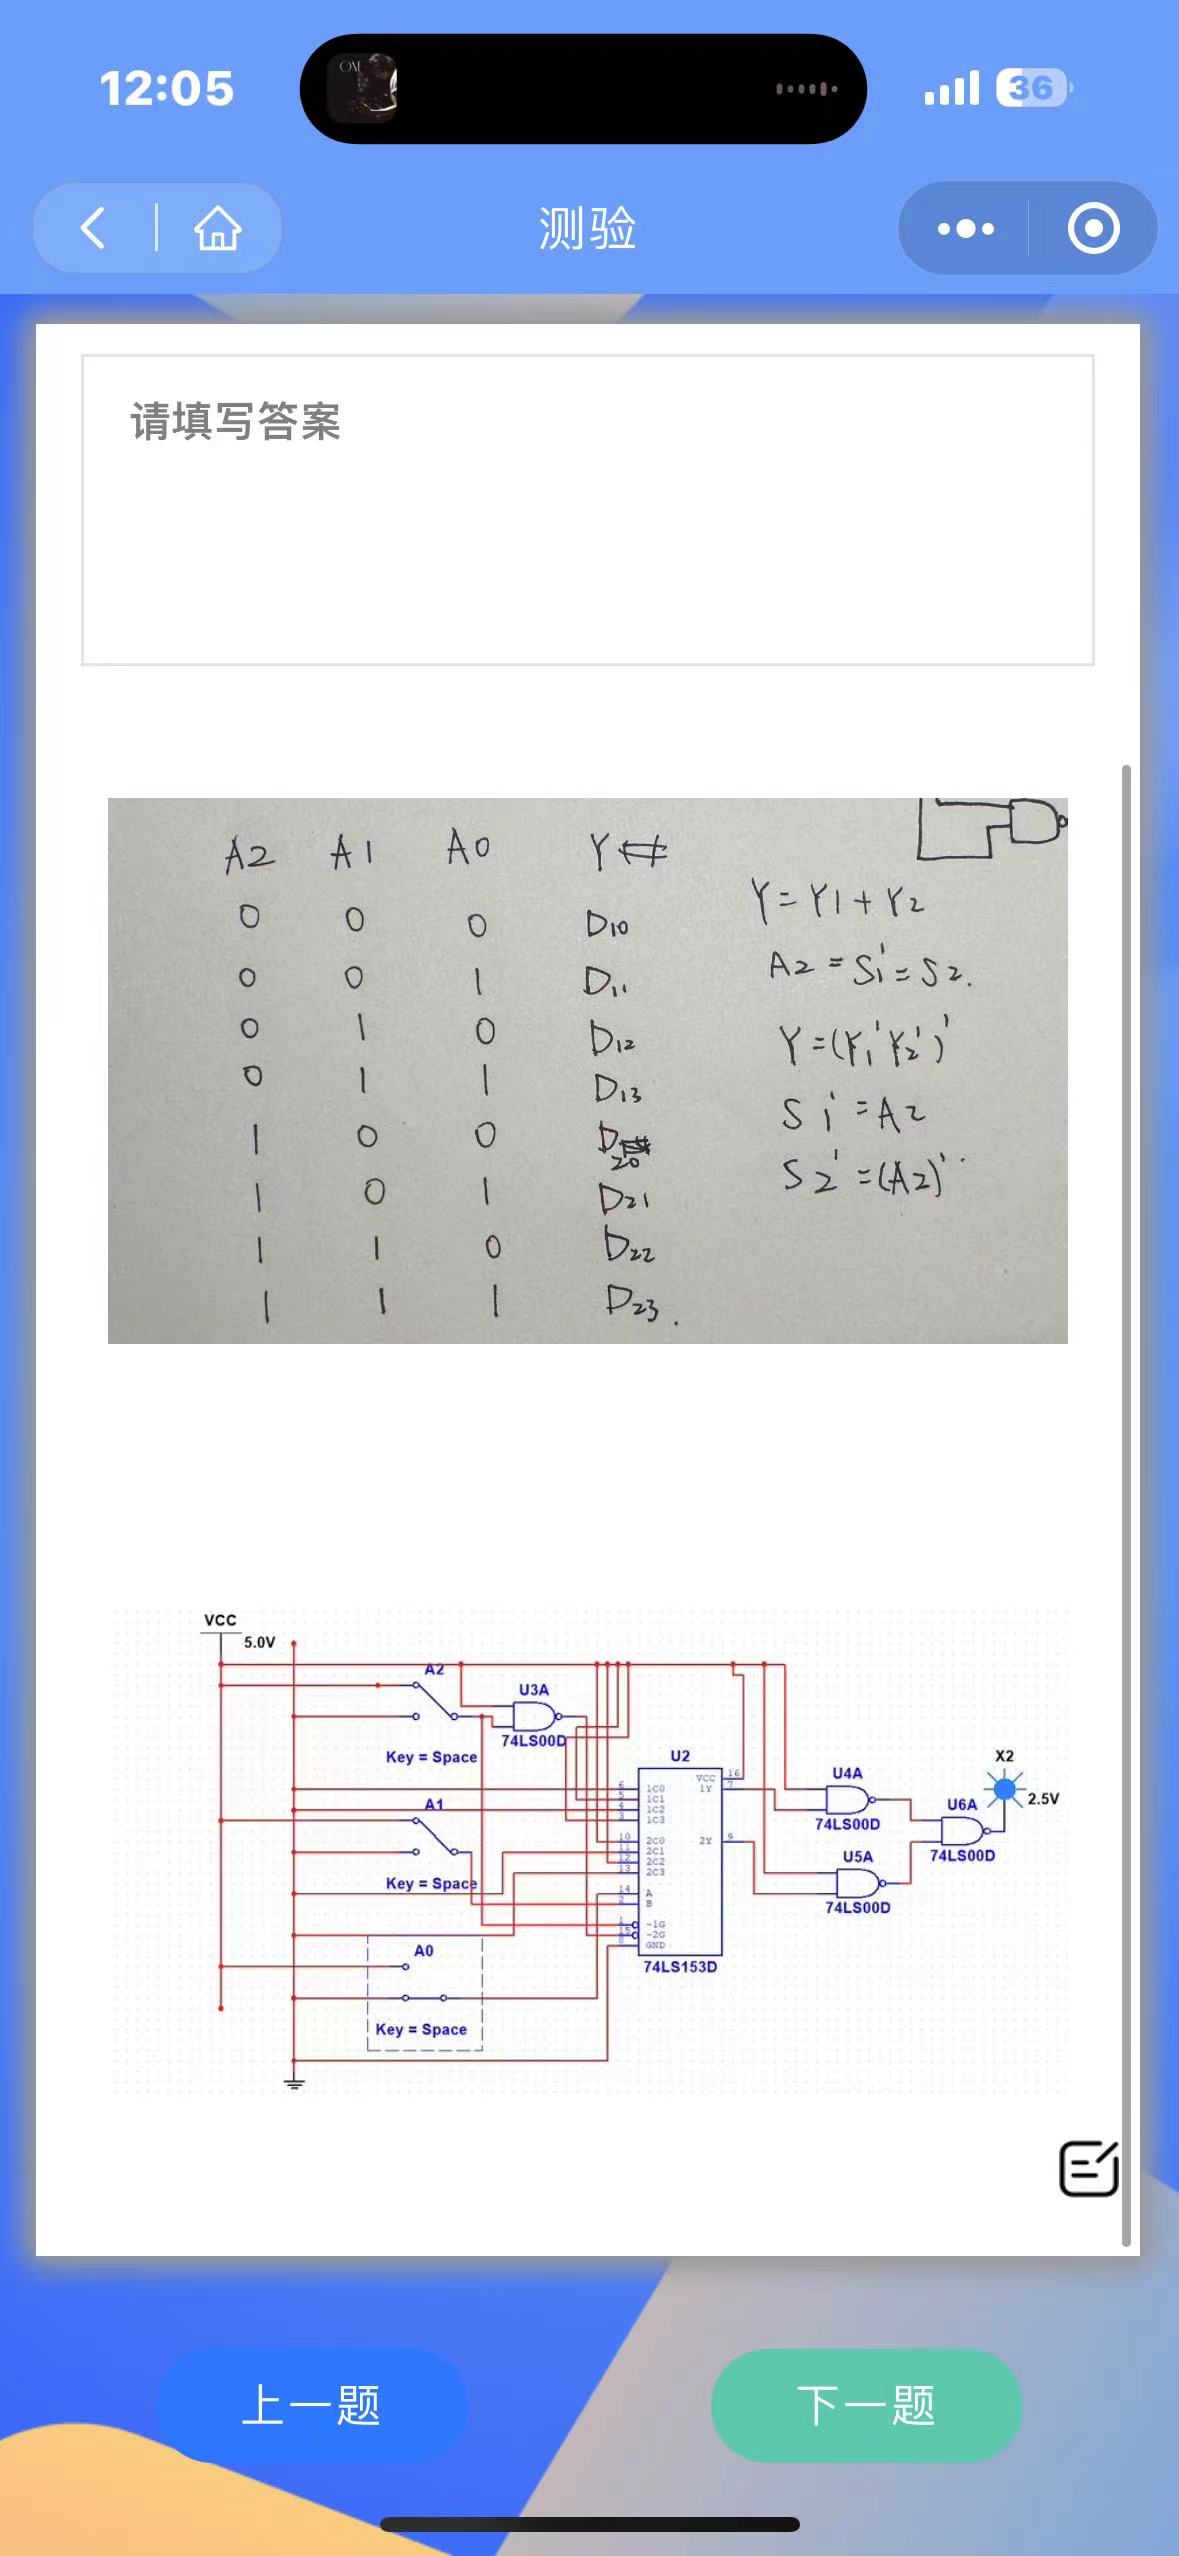 12:05
36
测验
请填写答案
A2 A1 A0 Y
0 0 0 D10
0 0 1 D11
0 1 0 D12
0 1 1 D13
1 0 0 D20
1 0 1 D21
1 1 0 D22
1 1 1 D23.
Y=Y1+Y2
A2=S1'=S2.
Y=(Y1'Y2')'
S1'=A2
S2'=(A2)'
VCC
5.0V
A2
Key = Space
U3A
74LS00D
A1
Key = Space
A0
Key = Space
U2
6 1C0
5 1C1
4 1C2
3 1C3
10 2C0
11 2C1
12 2C2
13 2C3
14 A
2 B
1 ~1G
15 ~2G
8 GND
VCC 16
1Y 7
2Y 9
74LS153D
U4A
74LS00D
U5A
74LS00D
U6A
74LS00D
X2
2.5V
上一题
下一题